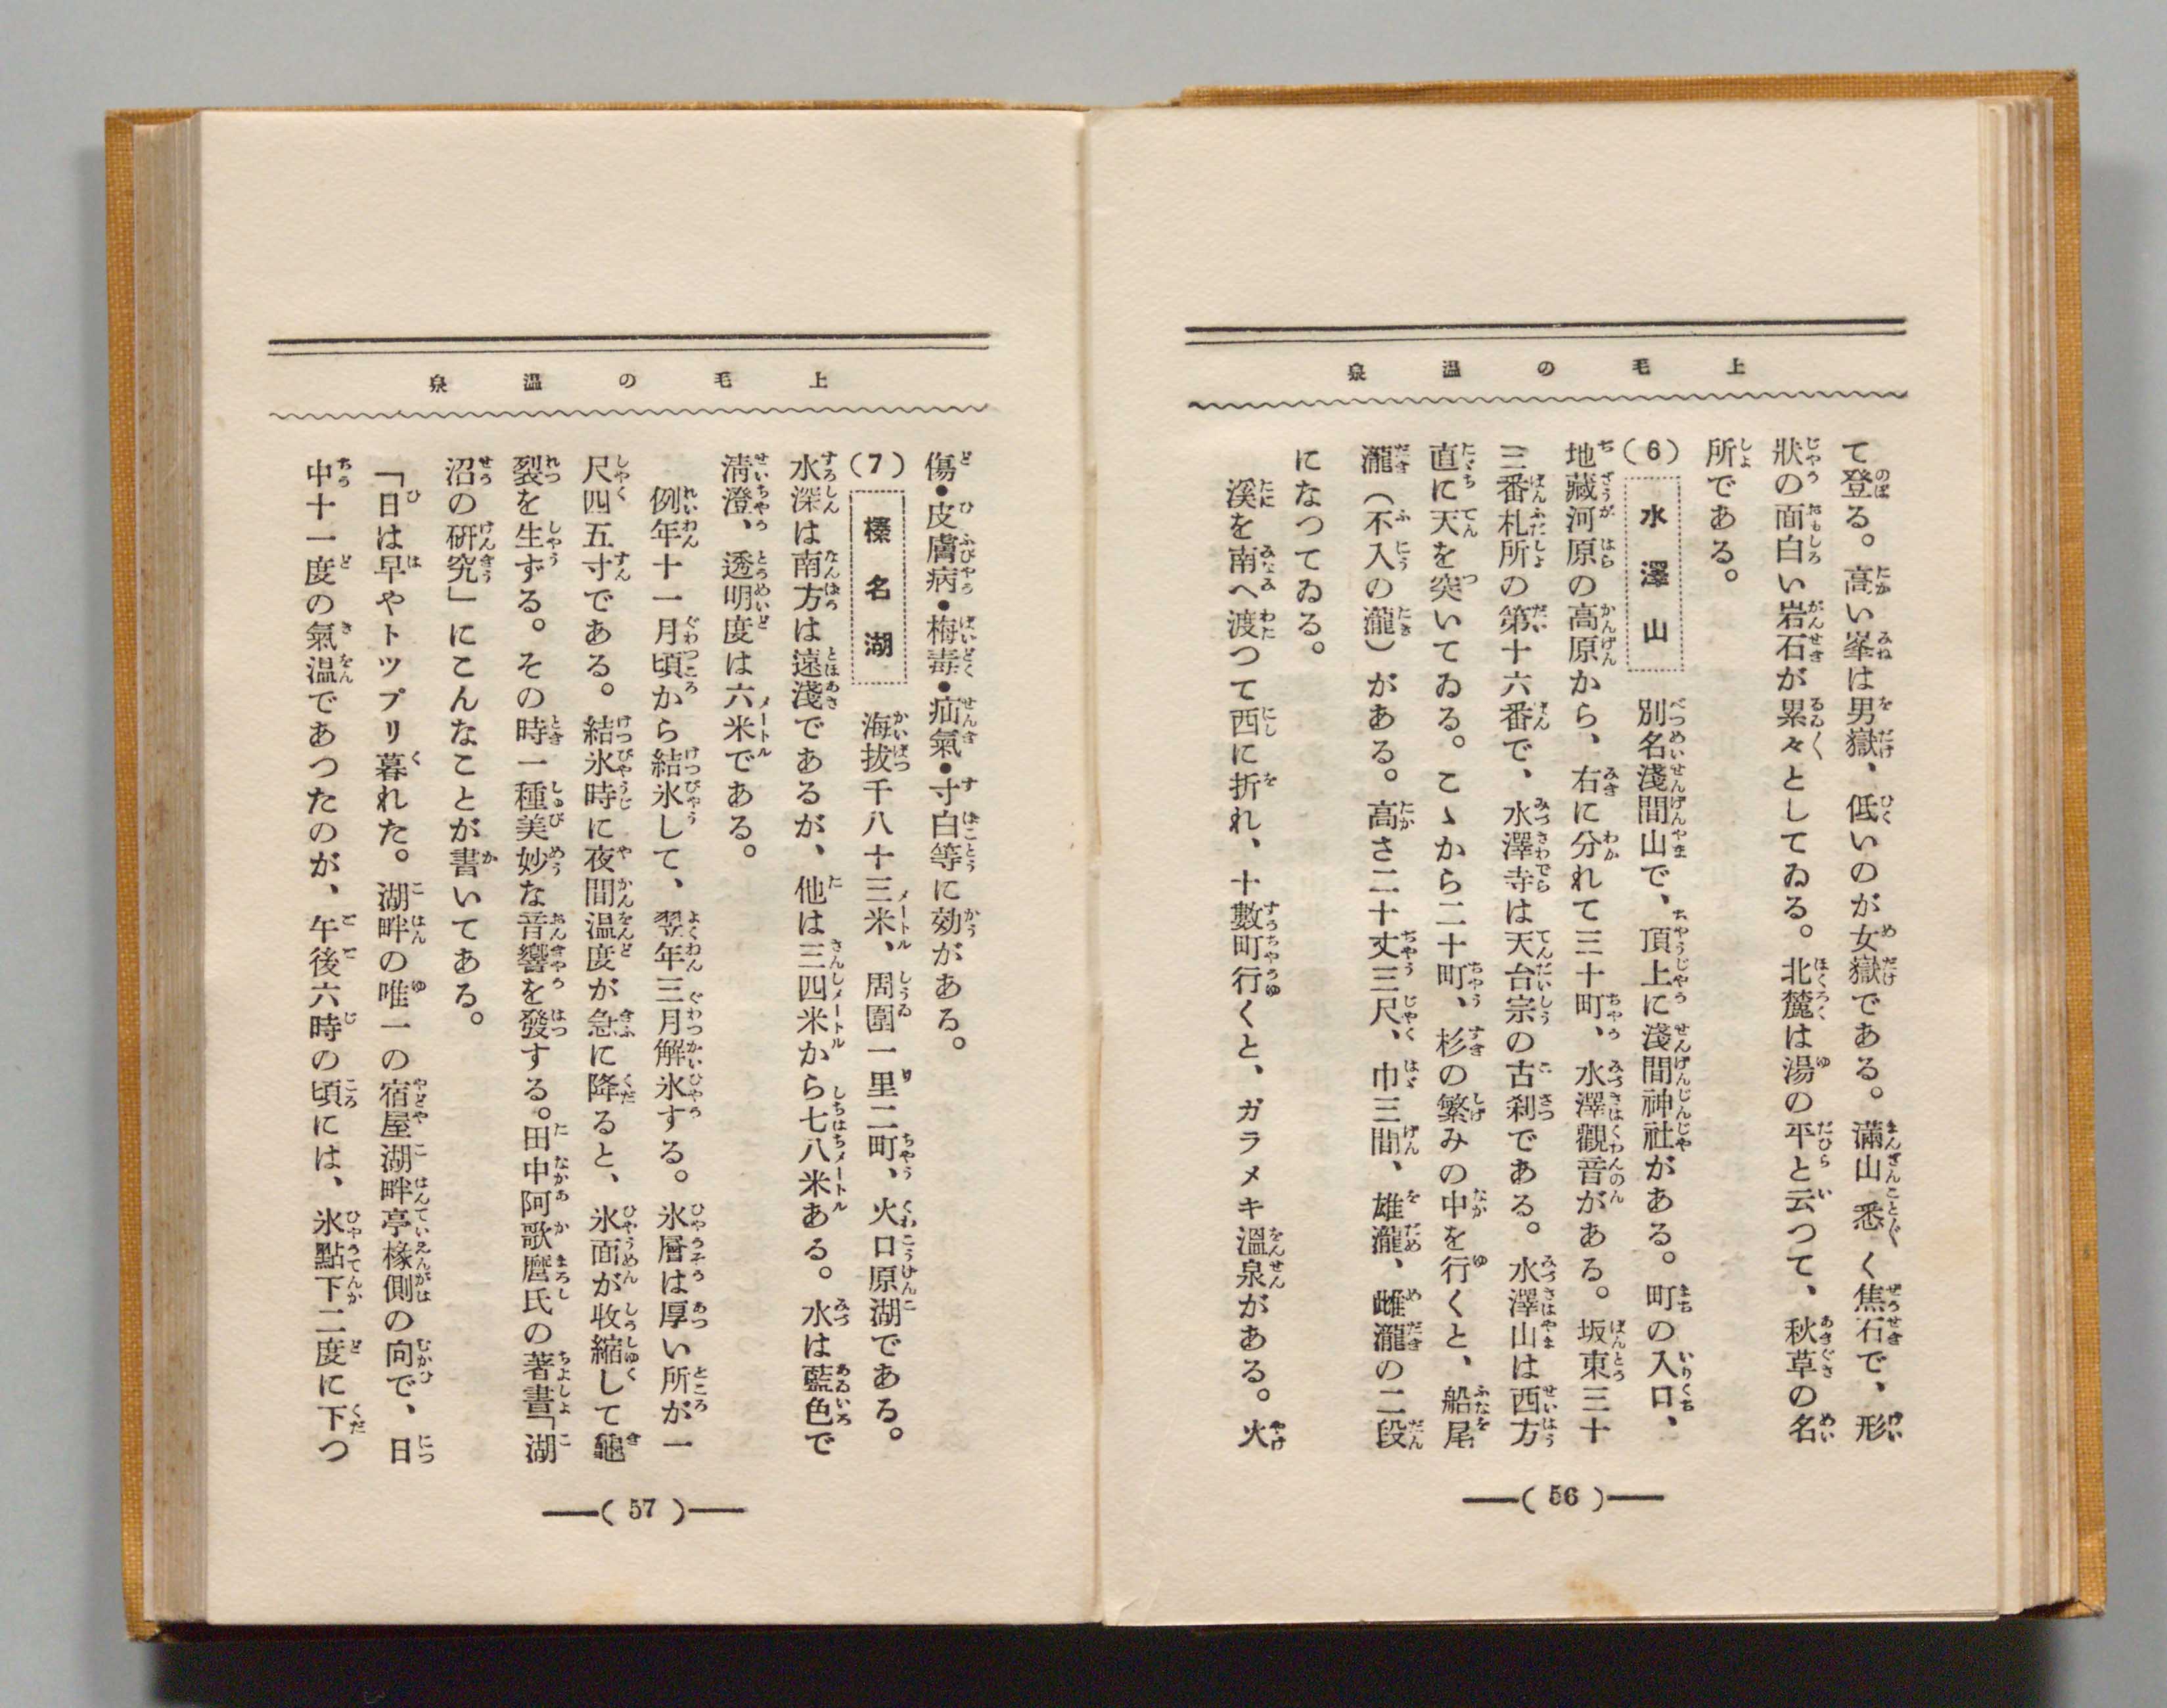 上毛の温泉
て登る。高い峯は男嶽、低いのが女嶽である。滿山悉く焦石で、形
狀の面白い岩石が累々としてゐる。北麓は湯の平と云つて、秋草の名
所である。
(6) 水澤山 別名淺間山で、頂上に淺間神社がある。町の入口、
地藏河原の高原から、右に分れて三十町、水澤觀音がある。坂東三十
三番札所の第十六番で、水澤寺は天台宗の古刹である。水澤山は西方
直に天を突いてゐる。こゝから二十町、杉の繁みの中を行くと、船尾
瀧(不入の瀧)がある。高さ二十丈三尺、巾三間、雄瀧、雌瀧の二段
になつてゐる。
溪を南へ渡つて西に折れ、十數町行くと、ガラメキ溫泉がある。火
(56)
上毛の温泉
傷・皮膚病・梅毒・疝氣・寸白等に効がある。
(7) 榛名湖 海拔千八十三米、周圍一里二町、火口原湖である。
水深は南方は遠淺であるが、他は三四米から七八米ある。水は藍色で
淸澄、透明度は六米である。
例年十一月頃から結氷して、翌年三月解氷する。氷層は厚い所が一
尺四五寸である。結氷時に夜間温度が急に降ると、氷面が收縮して龜
裂を生ずる。その時一種美妙な音響を發する。田中阿歌麿氏の著書「湖
沼の硏究」にこんなことが書いてある。
「日は早やトツプリ暮れた。湖畔の唯一の宿屋湖畔亭椽側の向で、日
中十一度の氣温であつたのが、午後六時の頃には、氷點下二度に下つ
(57)